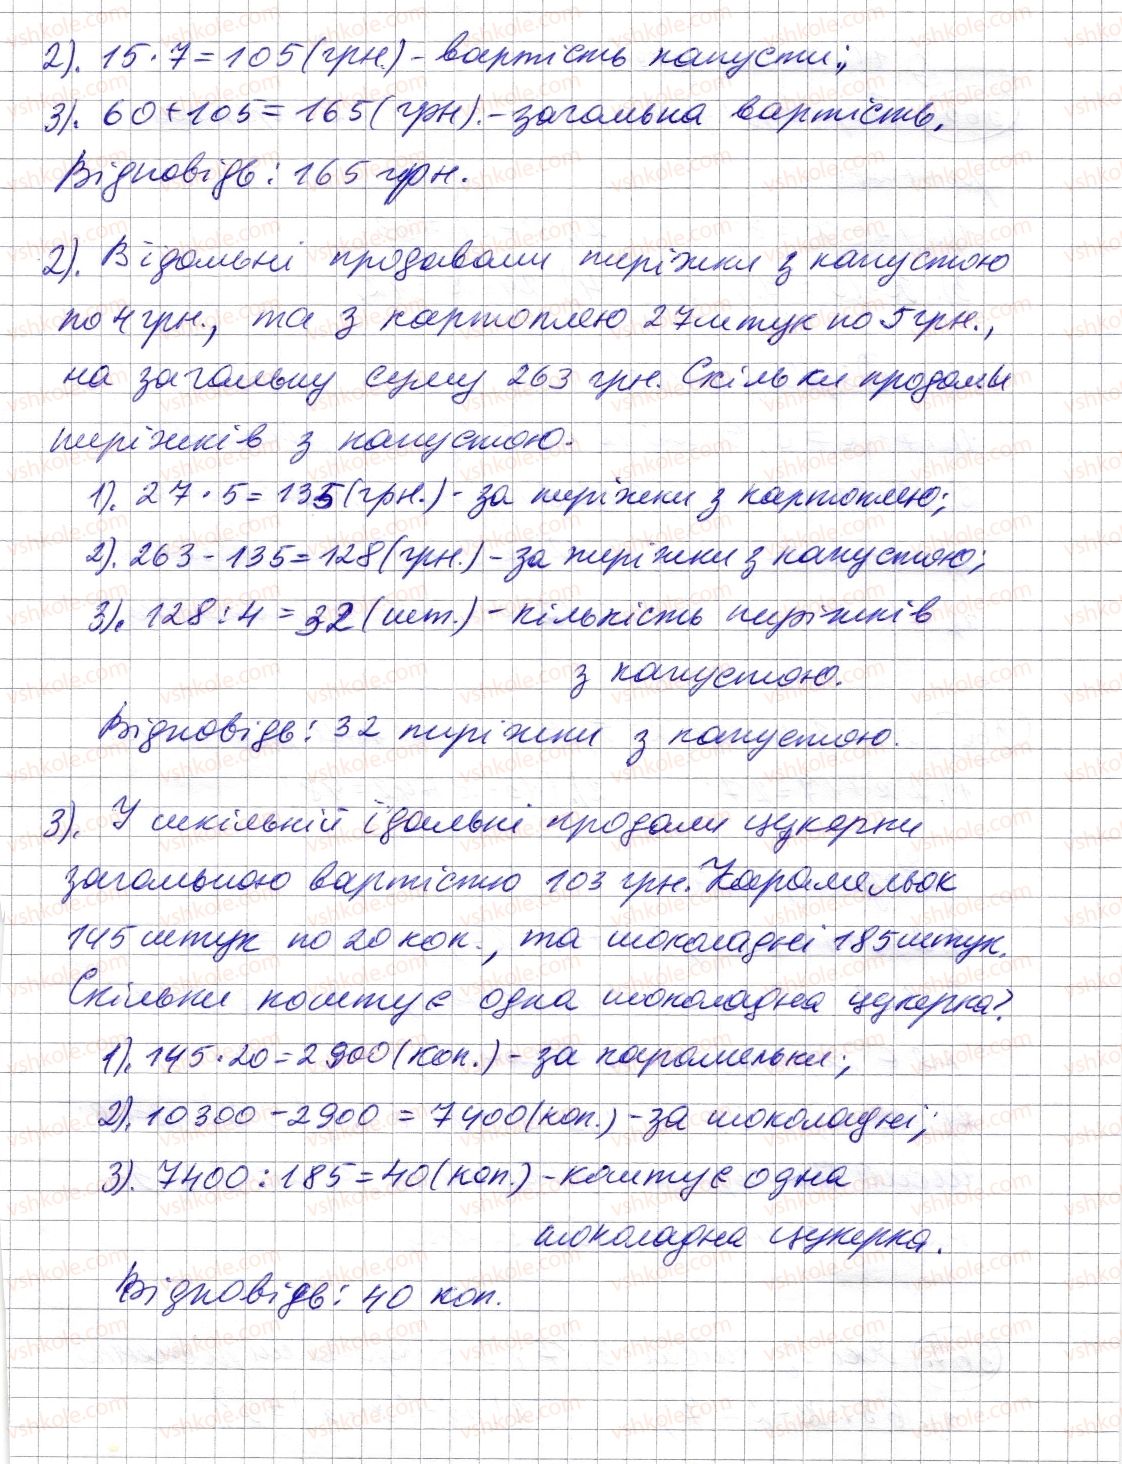 2). 15·7=105(грн.) - вартість капусти;
3). 60+105=165(грн). - загальна вартість.
Відповідь: 165 грн.
2). В їдальні продавали пиріжки з капустою
по 4 грн., та з картоплею 27 штук по 5 грн.,
на загальну суму 263 грн. Скільки продали
пиріжків з капустою.
1). 27·5=135(грн.) - за пиріжки з картоплею;
2). 263-135=128(грн.) - за пиріжки з капустою;
3). 128:4=32(шт.) - кількість пиріжків
з капустою.
Відповідь: 32 пиріжки з капустою.
3). У шкільній їдальні продали цукерки
загальною вартістю 103 грн. Карамельок
145 штук по 20 коп., та шоколадні 185 штук.
Скільки коштує одна шоколадна цукерка?
1). 145·20=2900(коп.) - за карамельки;
2). 10300-2900=7400(коп.) - за шоколадні;
3). 7400:185=40(коп.) - коштує одна
шоколадна цукерка.
Відповідь: 40 коп.